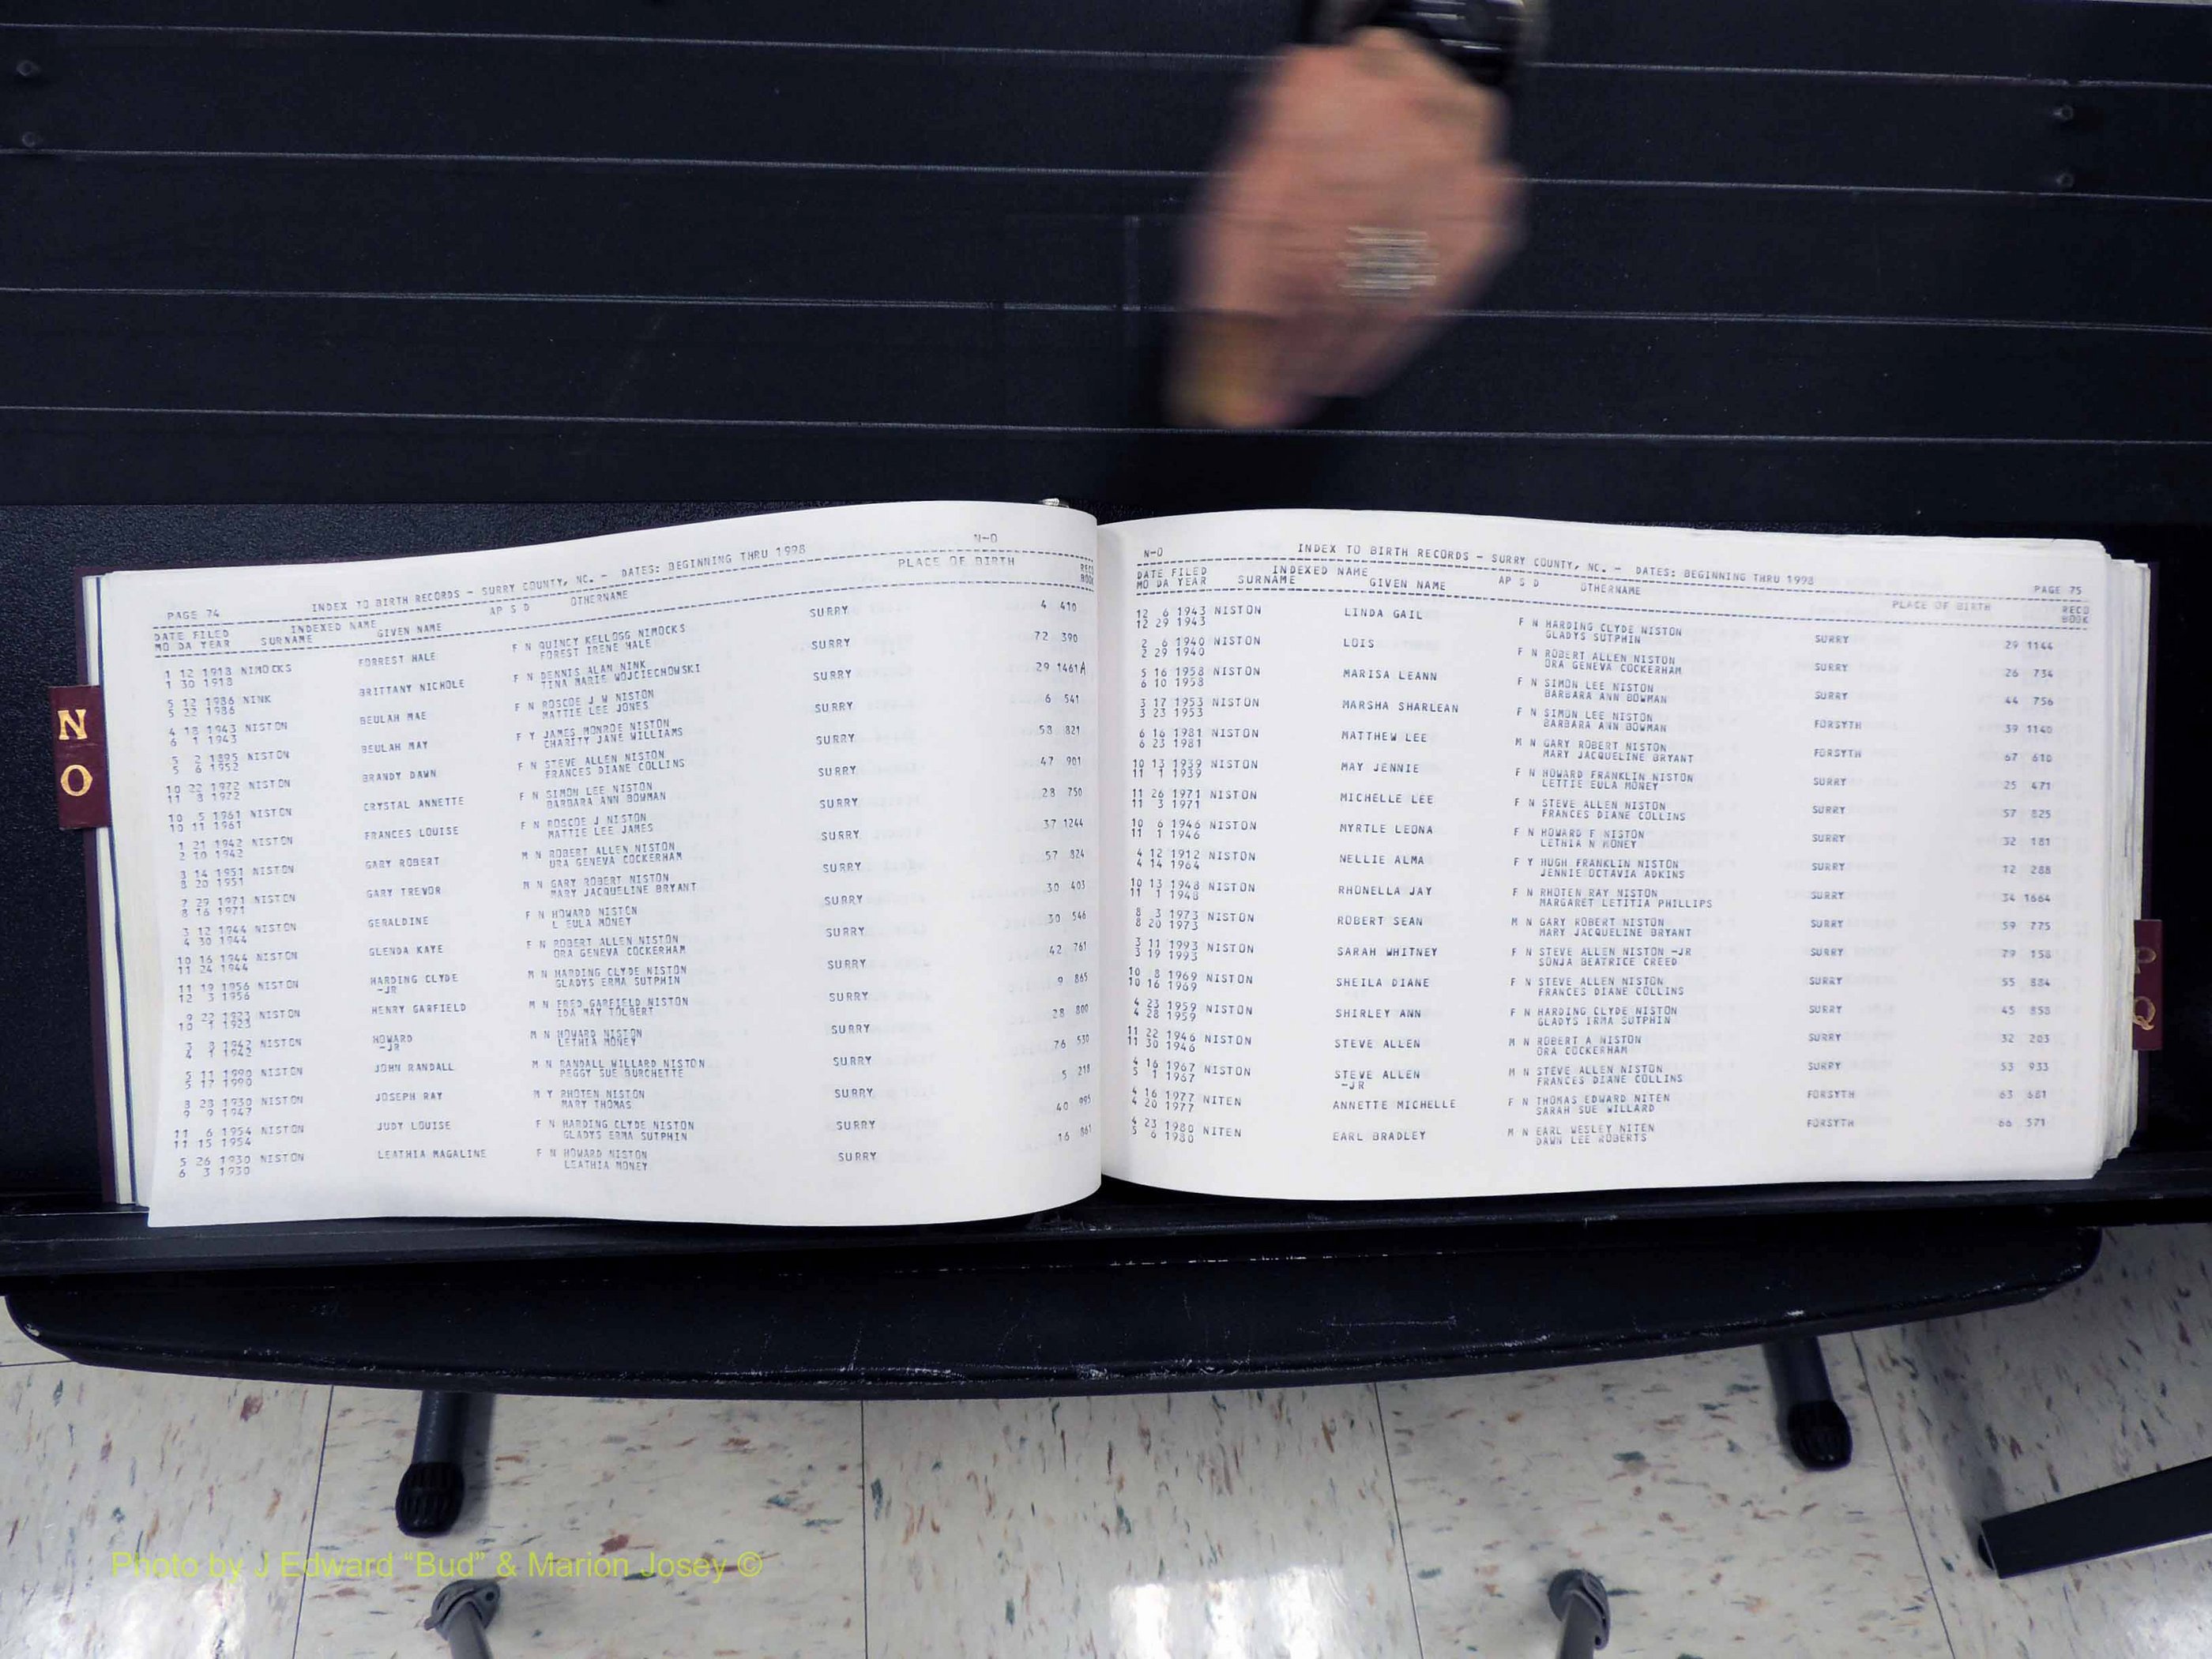 N-O
INDEX TO BIRTH RECORDS - SURRY COUNTY, NC. - DATES: BEGINNING THRU 1998
PAGE 74
DATE FILED INDEXED NAME AP S D OTHERNAME PLACE OF BIRTH RECD
MO DA YEAR SURNAME GIVEN NAME BOOK
1 12 1918 NIMOCKS FORREST HALE F N QUINCY KELLOGG NIMOCKS SURRY 4 410
1 30 1918 FOREST IRENE HALE
5 12 1986 NINK BRITTANY NICHOLE F N DENNIS ALAN NINK SURRY 72 390
5 22 1986 TINA MARIE WOJCIECHOWSKI
4 18 1943 NISTON BEULAH MAE F N ROSCOE J W NISTON SURRY 29 1461A
6 1 1943 MATTIE LEE JONES
5 2 1895 NISTON BEULAH MAY F Y JAMES MONROE NISTON SURRY 6 541
5 6 1952 CHARITY JANE WILLIAMS
10 22 1972 NISTON BRANDY DAWN F N STEVE ALLEN NISTON SURRY 58 821
11 8 1972 FRANCES DIANE COLLINS
10 5 1961 NISTON CRYSTAL ANNETTE F N SIMON LEE NISTON SURRY 47 901
10 11 1961 BARBARA ANN BOWMAN
1 21 1942 NISTON FRANCES LOUISE F N ROSCOE J NISTON SURRY 28 750
2 10 1942 MATTIE LEE JAMES
3 14 1951 NISTON GARY ROBERT M N ROBERT ALLEN NISTON SURRY 37 1244
8 20 1951 ORA GENEVA COCKERHAM
7 29 1971 NISTON GARY TREVOR M N GARY ROBERT NISTON SURRY 57 824
8 16 1971 MARY JACQUELINE BRYANT
3 12 1944 NISTON GERALDINE F N HOWARD NISTON SURRY 30 403
4 30 1944 L EULA MONEY
10 16 1944 NISTON GLENDA KAYE F N ROBERT ALLEN NISTON SURRY 30 546
11 24 1944 ORA GENEVA COCKERHAM
11 19 1956 NISTON HARDING CLYDE M N HARDING CLYDE NISTON SURRY 42 761
12 3 1956 -JR GLADYS ERMA SUTPHIN
9 22 1923 NISTON HENRY GARFIELD M N FRED GARFIELD NISTON SURRY 9 865
10 1 1923 IDA MAY TOLBERT
3 8 1942 NISTON HOWARD M N HOWARD NISTON SURRY 28 800
4 1 1942 -JR LETHIA MONEY
5 11 1990 NISTON JOHN RANDALL M N RANDALL WILLARD NISTON SURRY 76 530
5 17 1990 PEGGY SUE BURCHETTE
8 28 1930 NISTON JOSEPH RAY M Y RHOTEN NISTON SURRY 5 218
9 9 1947 MARY THOMAS
11 6 1954 NISTON JUDY LOUISE F N HARDING CLYDE NISTON SURRY 40 995
11 15 1954 GLADYS ERMA SUTPHIN
5 26 1930 NISTON LEATHIA MAGALINE F N HOWARD NISTON SURRY 16 861
6 3 1930 LEATHIA MONEY
N-O
INDEX TO BIRTH RECORDS - SURRY COUNTY, NC. - DATES: BEGINNING THRU 1998
PAGE 75
DATE FILED INDEXED NAME AP S D OTHERNAME PLACE OF BIRTH RECD
MO DA YEAR SURNAME GIVEN NAME BOOK
12 6 1943 NISTON LINDA GAIL F N HARDING CLYDE NISTON SURRY 29 1144
12 29 1943 GLADYS SUTPHIN
2 6 1940 NISTON LOIS F N ROBERT ALLEN NISTON SURRY 26 734
2 29 1940 ORA GENEVA COCKERHAM
5 16 1958 NISTON MARISA LEANN F N SIMON LEE NISTON SURRY 44 756
6 10 1958 BARBARA ANN BOWMAN
3 17 1953 NISTON MARSHA SHARLEAN F N SIMON LEE NISTON FORSYTH 39 1140
3 23 1953 BARBARA ANN BOWMAN
6 16 1981 NISTON MATTHEW LEE M N GARY ROBERT NISTON FORSYTH 67 610
6 23 1981 MARY JACQUELINE BRYANT
10 13 1939 NISTON MAY JENNIE F N HOWARD FRANKLIN NISTON SURRY 25 471
11 1 1939 LETTIE EULA MONEY
11 26 1971 NISTON MICHELLE LEE F N STEVE ALLEN NISTON SURRY 57 825
11 3 1971 FRANCES DIANE COLLINS
10 6 1946 NISTON MYRTLE LEONA F N HOWARD F NISTON SURRY 32 181
11 1 1946 LETHIA N MONEY
4 12 1912 NISTON NELLIE ALMA F Y HUGH FRANKLIN NISTON SURRY 12 288
4 14 1964 JENNIE OCTAVIA ADKINS
10 13 1948 NISTON RHONELLA JAY F N RHOTEN RAY NISTON SURRY 34 1664
11 1 1948 MARGARET LETITIA PHILLIPS
8 3 1973 NISTON ROBERT SEAN M N GARY ROBERT NISTON SURRY 59 775
8 20 1973 MARY JACQUELINE BRYANT
3 11 1993 NISTON SARAH WHITNEY F N STEVE ALLEN NISTON -JR SURRY 79 158
3 19 1993 SONJA BEATRICE CREED
10 8 1969 NISTON SHEILA DIANE F N STEVE ALLEN NISTON SURRY 55 884
10 16 1969 FRANCES DIANE COLLINS
4 23 1959 NISTON SHIRLEY ANN F N HARDING CLYDE NISTON SURRY 45 858
4 28 1959 GLADYS IRMA SUTPHIN
11 22 1946 NISTON STEVE ALLEN M N ROBERT A NISTON SURRY 32 203
11 30 1946 ORA COCKERHAM
4 16 1967 NISTON STEVE ALLEN M N STEVE ALLEN NISTON SURRY 53 933
5 1 1967 -JR FRANCES DIANE COLLINS
4 16 1977 NITEN ANNETTE MICHELLE F N THOMAS EDWARD NITEN FORSYTH 63 681
4 20 1977 SARAH SUE WILLARD
4 23 1980 NITEN EARL BRADLEY M N EARL WESLEY NITEN FORSYTH 66 571
5 6 1980 DAWN LEE ROBERTS
N
O
Q
Photo by J Edward “Bud” & Marion Josey ©